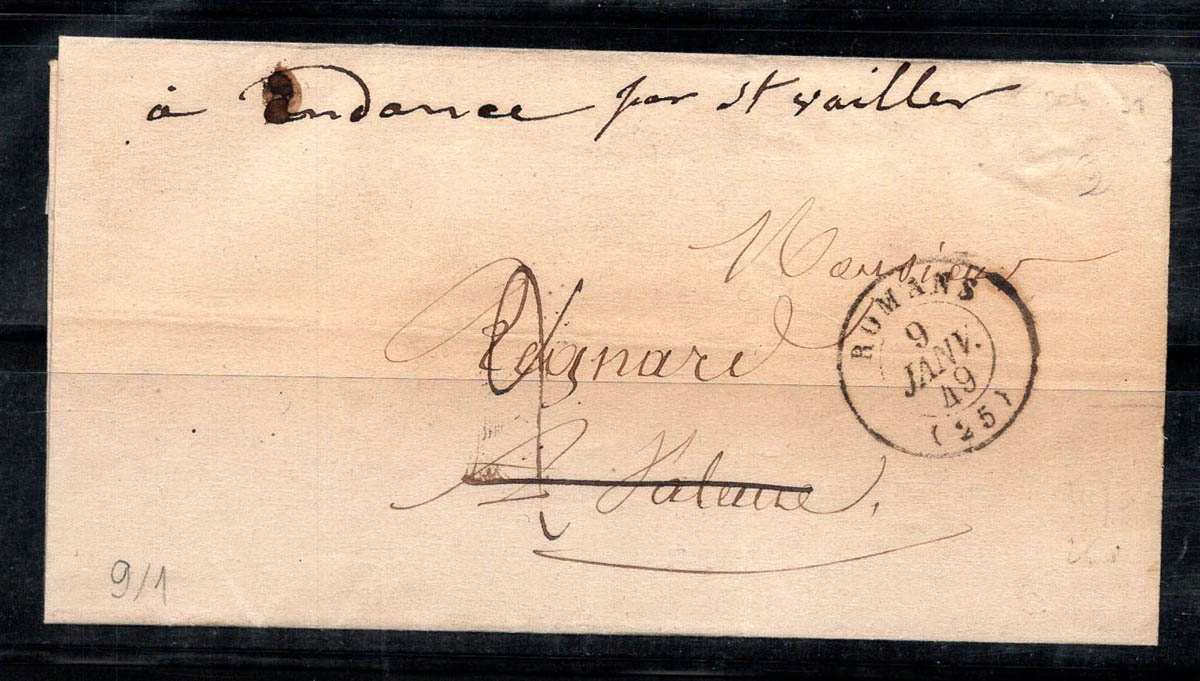 à Andance par St vallier
Monsieur
Reignard
A Valence.
ROMANS
9
JANV.
49
(25)
9/1
2